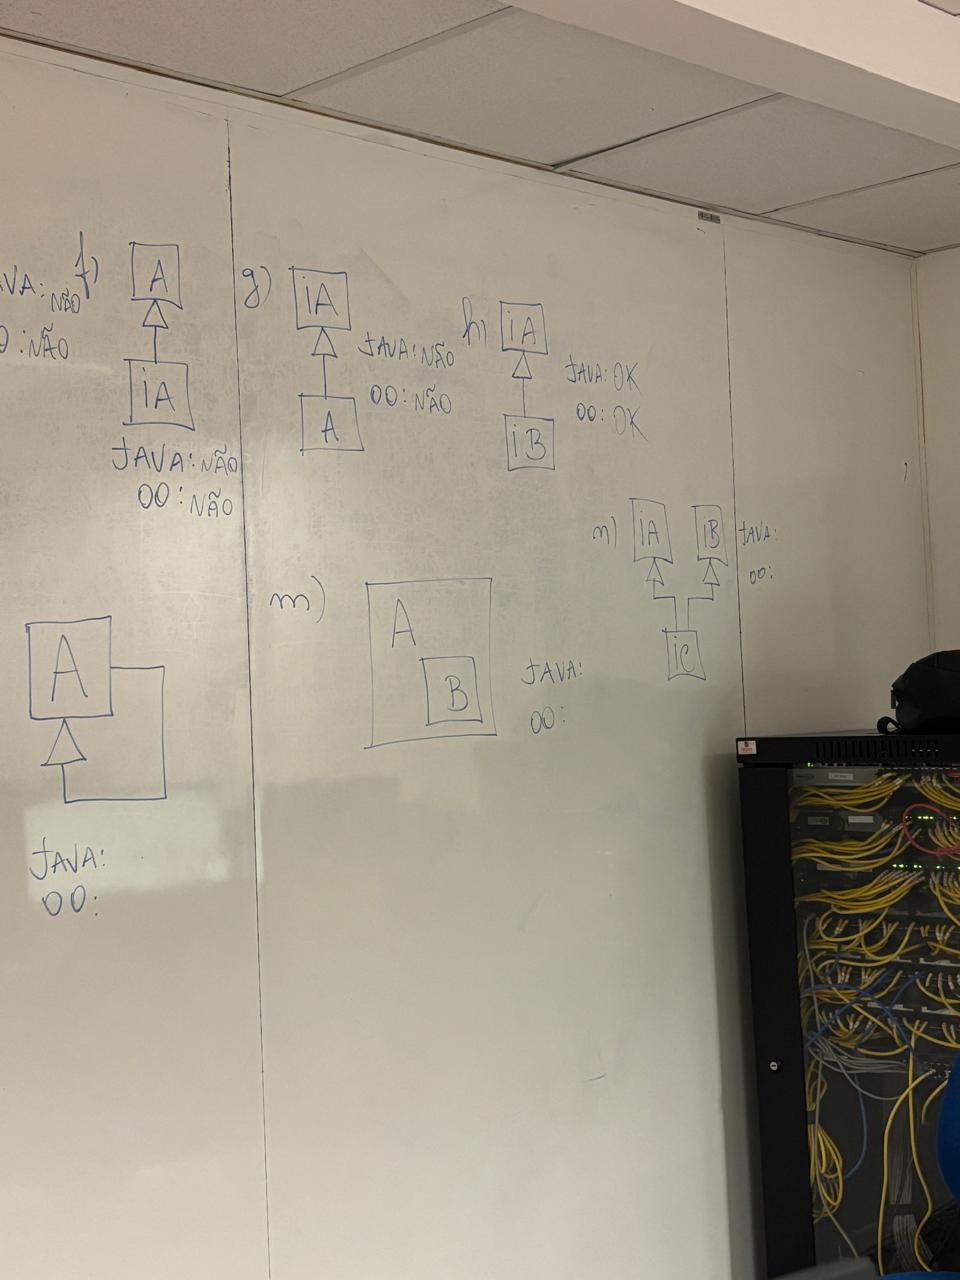 AVA: NÃO
O: NÃO
f)
A
iA
JAVA: NÃO
OO: NÃO
g)
iA
A
JAVA: NÃO
OO: NÃO
h)
iA
iB
JAVA: OK
OO: OK
A
JAVA:
OO:
m)
A
B
JAVA:
OO:
n)
iA
iB
iC
JAVA:
OO: